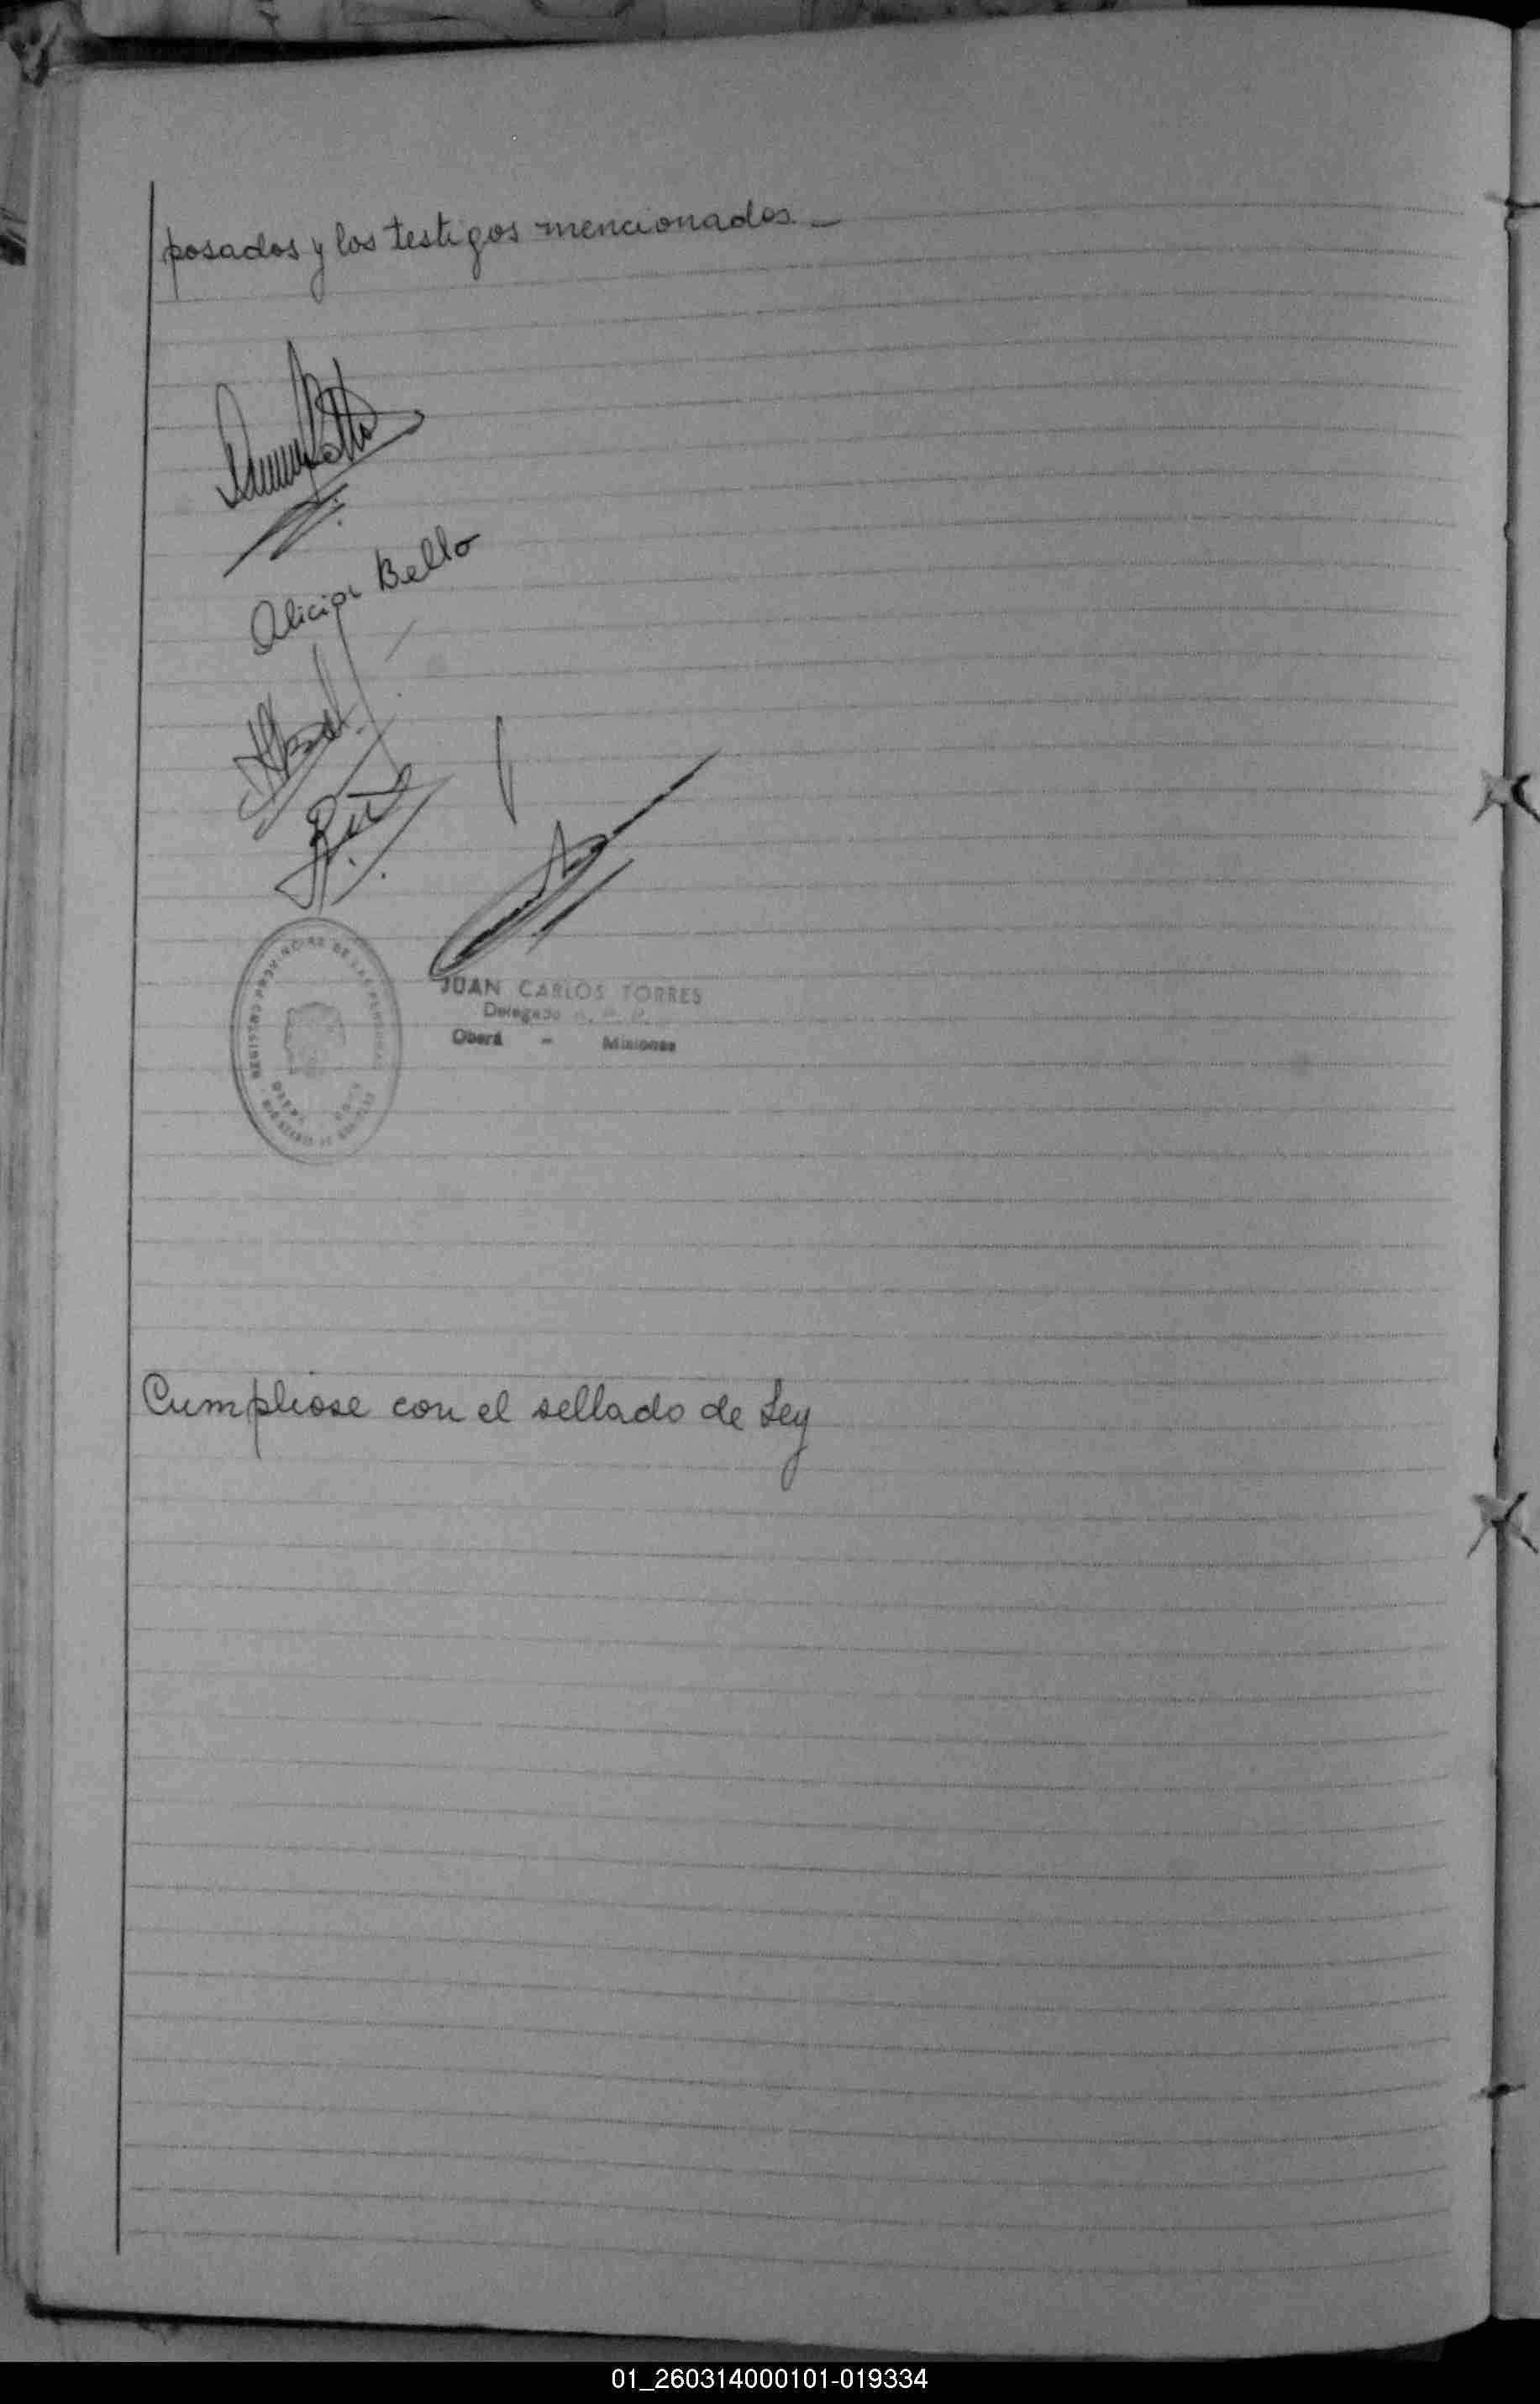 posados y los testigos mencionados. _
Alicia Bello
REGISTRO PROVINCIAL DE LAS PERSONAS
JUAN CARLOS TORRES
Delegado
Oberá - Misiones
Cumpliose con el sellado de Ley
01_260314000101-019334